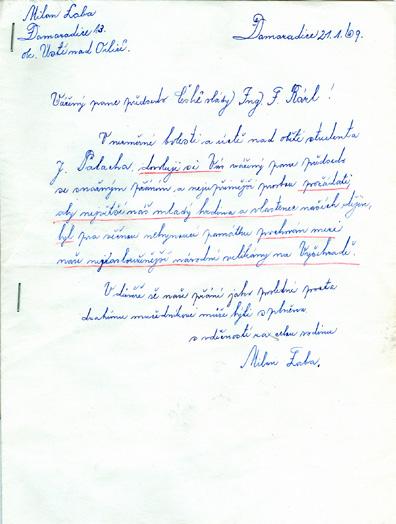 Milan Laba
Damaradice 13.
ok. Ústí nad Orlicí. Damaradice 21.1.69.
Vážený pane předsedo České vlády, Ing. F. Kárl!
V nesmírné bolesti a úctě nad obětí studenta
J. Palacha, dovoluji si Vás vážený pane předsedo
se snažným přáním a nejupřímější prosbou požádati,
aby největší náš mladý hrdina a vlastenec našich dějin,
byl pro věčnou nehynoucí památku pochován mezi
naše nejzasloužilejší národní velikány na Vyšehradě.
V důvěře že naše přání jako poslední pocta
drahému mučedníkovi může býti splněna
s vděčností za celou rodinu
Milan Laba.